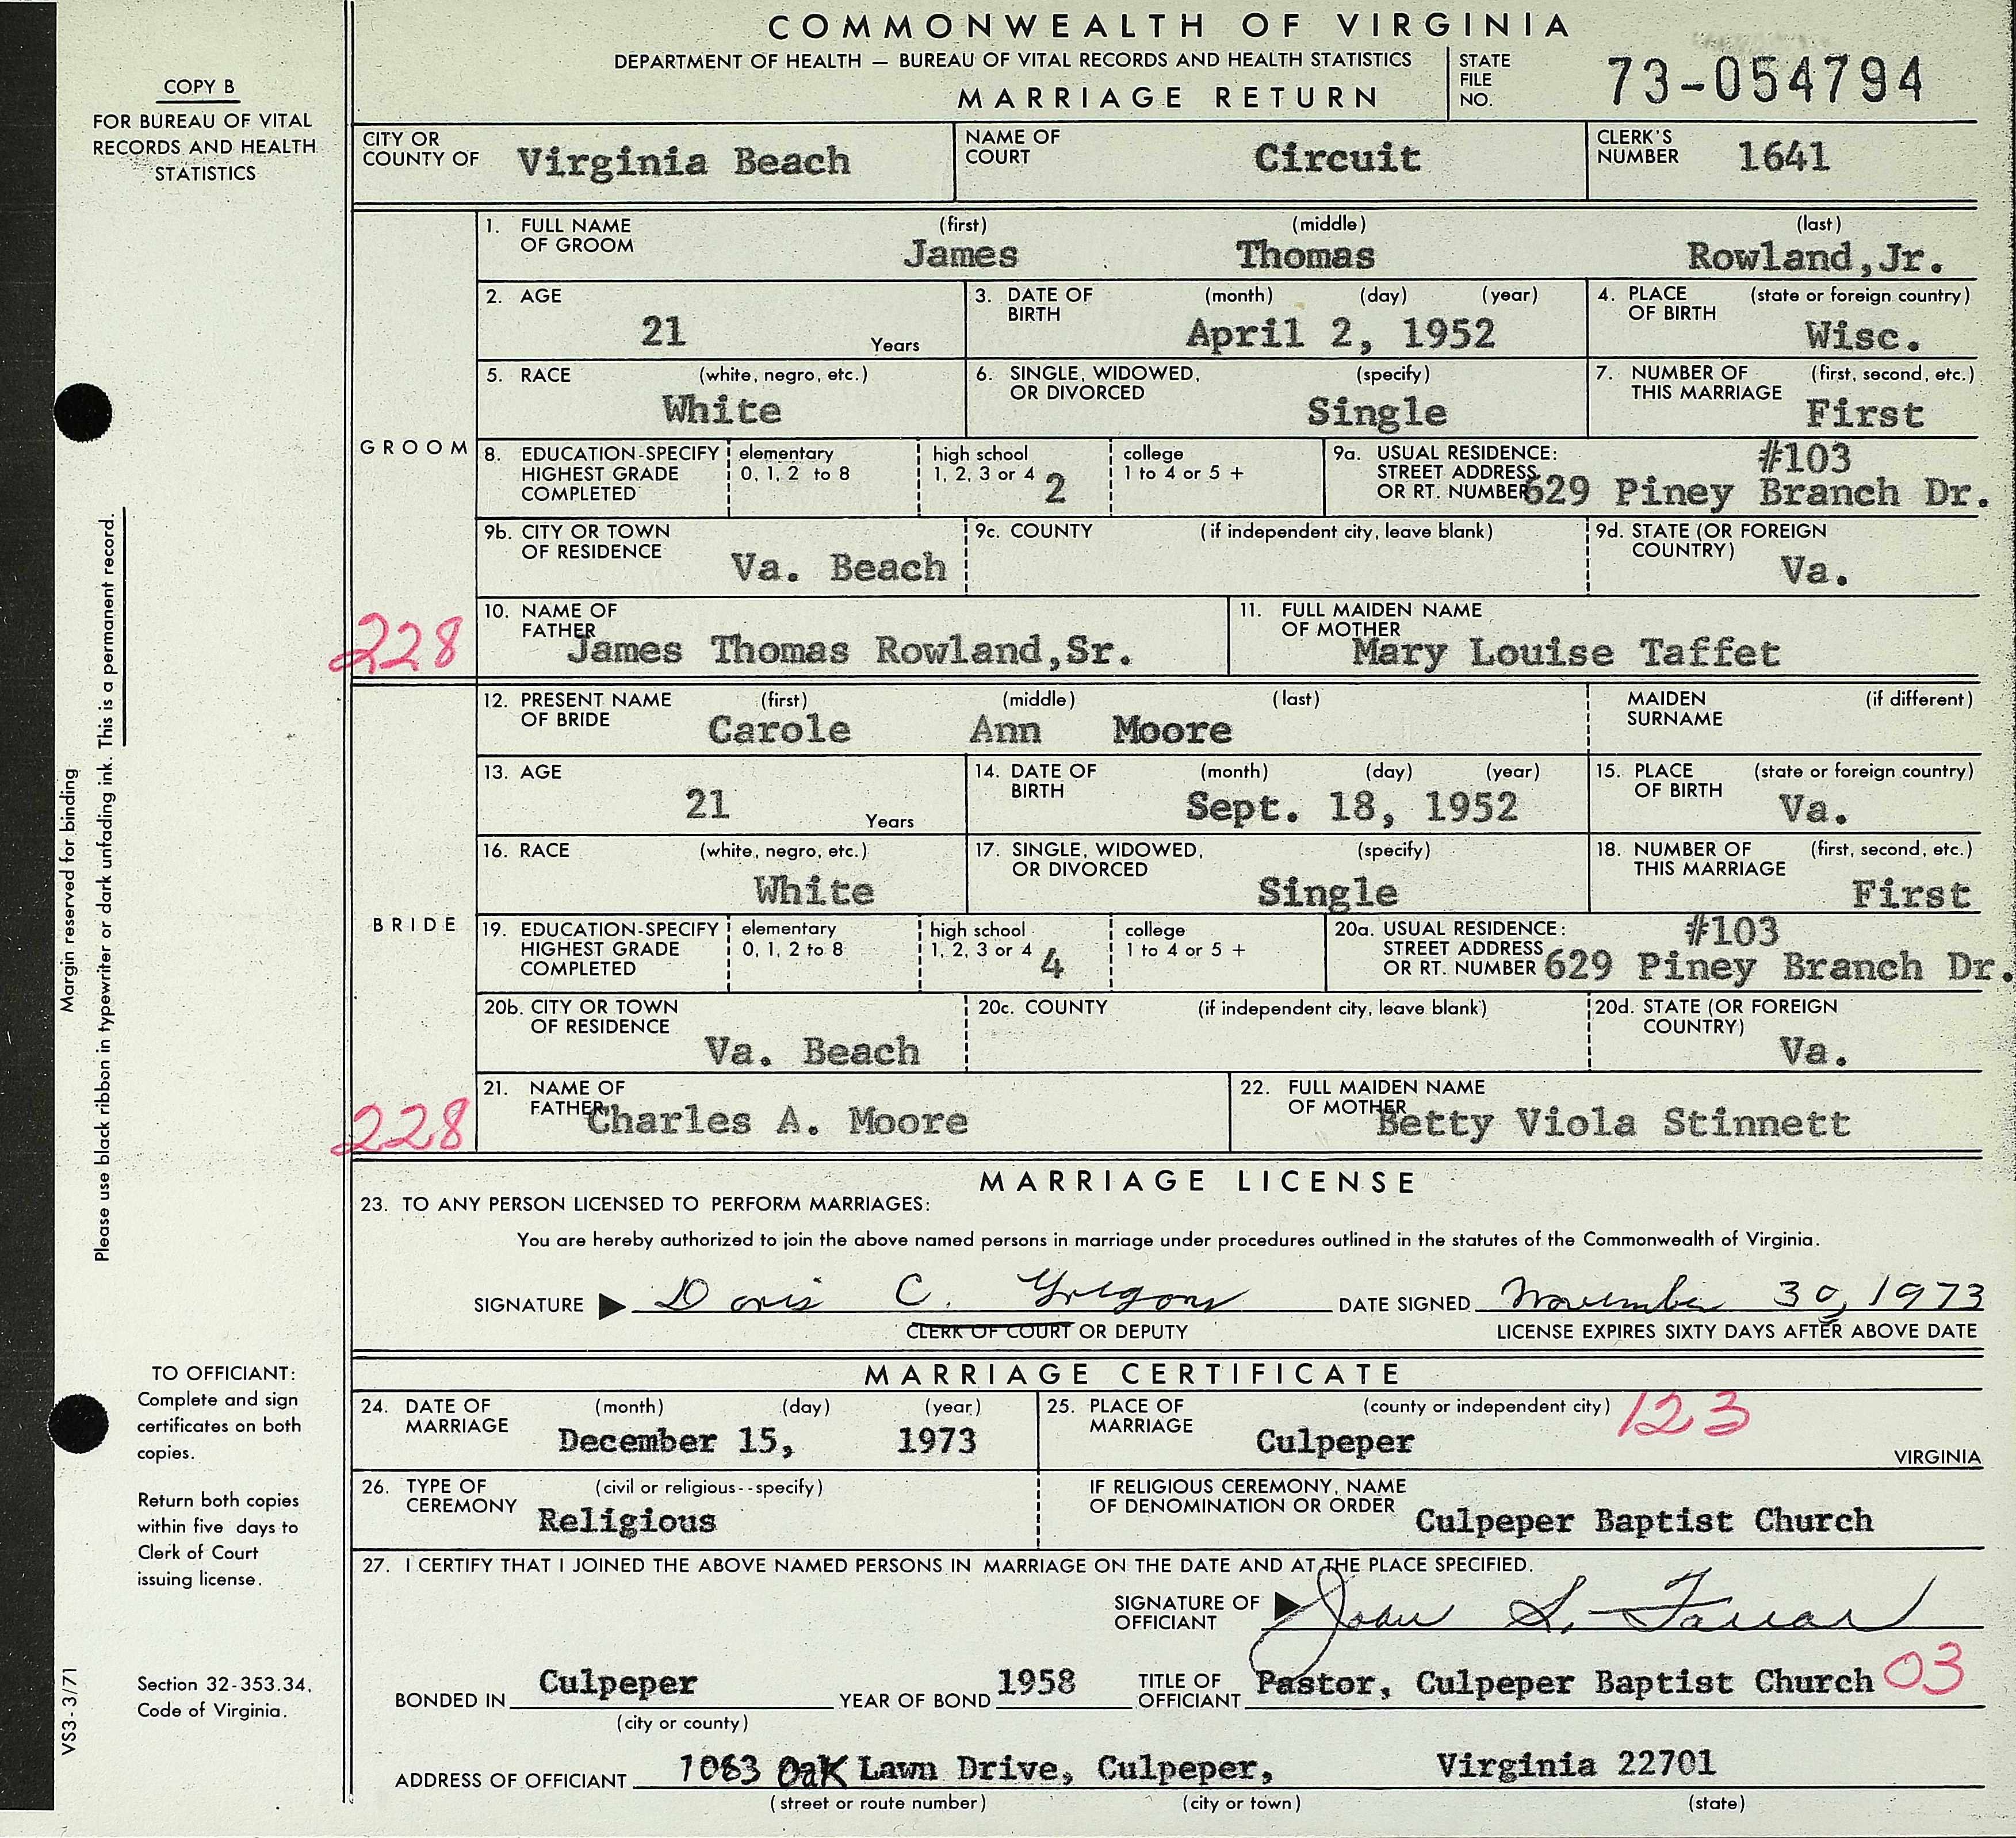 COMMONWEALTH OF VIRGINIA
DEPARTMENT OF HEALTH — BUREAU OF VITAL RECORDS AND HEALTH STATISTICS
MARRIAGE RETURN
STATE FILE NO. 73-054794
COPY B
FOR BUREAU OF VITAL
RECORDS AND HEALTH
STATISTICS
CITY OR COUNTY OF Virginia Beach NAME OF COURT Circuit CLERK'S NUMBER 1641
GROOM
1. FULL NAME OF GROOM (first) James (middle) Thomas (last) Rowland,Jr.
2. AGE 21 Years 3. DATE OF BIRTH (month) (day) (year) April 2, 1952 4. PLACE OF BIRTH (state or foreign country) Wisc.
5. RACE (white, negro, etc.) White 6. SINGLE, WIDOWED, OR DIVORCED (specify) Single 7. NUMBER OF THIS MARRIAGE (first, second, etc.) First
8. EDUCATION-SPECIFY HIGHEST GRADE COMPLETED elementary 0, 1, 2 to 8 high school 1, 2, 3 or 4 2 college 1 to 4 or 5 + 9a. USUAL RESIDENCE: STREET ADDRESS OR RT. NUMBER #103 629 Piney Branch Dr.
9b. CITY OR TOWN OF RESIDENCE Va. Beach 9c. COUNTY (if independent city, leave blank) 9d. STATE (OR FOREIGN COUNTRY) Va.
228
10. NAME OF FATHER James Thomas Rowland,Sr. 11. FULL MAIDEN NAME OF MOTHER Mary Louise Taffet
BRIDE
12. PRESENT NAME OF BRIDE (first) Carole (middle) Ann (last) Moore MAIDEN SURNAME (if different)
13. AGE 21 Years 14. DATE OF BIRTH (month) (day) (year) Sept. 18, 1952 15. PLACE OF BIRTH (state or foreign country) Va.
16. RACE (white, negro, etc.) White 17. SINGLE, WIDOWED, OR DIVORCED (specify) Single 18. NUMBER OF THIS MARRIAGE (first, second, etc.) First
19. EDUCATION-SPECIFY HIGHEST GRADE COMPLETED elementary 0, 1, 2 to 8 high school 1, 2, 3 or 4 4 college 1 to 4 or 5 + 20a. USUAL RESIDENCE: STREET ADDRESS OR RT. NUMBER #103 629 Piney Branch Dr.
20b. CITY OR TOWN OF RESIDENCE Va. Beach 20c. COUNTY (if independent city, leave blank) 20d. STATE (OR FOREIGN COUNTRY) Va.
228
21. NAME OF FATHER Charles A. Moore 22. FULL MAIDEN NAME OF MOTHER Betty Viola Stinnett
MARRIAGE LICENSE
23. TO ANY PERSON LICENSED TO PERFORM MARRIAGES:
You are hereby authorized to join the above named persons in marriage under procedures outlined in the statutes of the Commonwealth of Virginia.
SIGNATURE Doris C. Gregory DATE SIGNED November 30, 1973
CLERK OF COURT OR DEPUTY LICENSE EXPIRES SIXTY DAYS AFTER ABOVE DATE
MARRIAGE CERTIFICATE
24. DATE OF MARRIAGE (month) (day) (year) December 15, 1973 25. PLACE OF MARRIAGE (county or independent city) 123 Culpeper VIRGINIA
26. TYPE OF CEREMONY (civil or religious--specify) Religious IF RELIGIOUS CEREMONY, NAME OF DENOMINATION OR ORDER Culpeper Baptist Church
27. I CERTIFY THAT I JOINED THE ABOVE NAMED PERSONS IN MARRIAGE ON THE DATE AND AT THE PLACE SPECIFIED.
SIGNATURE OF OFFICIANT John S. Farrar
BONDED IN Culpeper YEAR OF BOND 1958 TITLE OF OFFICIANT Pastor, Culpeper Baptist Church 03
(city or county)
ADDRESS OF OFFICIANT 1063 Oak Lawn Drive, Culpeper, Virginia 22701
(street or route number) (city or town) (state)
Margin reserved for binding
Please use black ribbon in typewriter or dark unfading ink. This is a permanent record.
TO OFFICIANT:
Complete and sign
certificates on both
copies.
Return both copies
within five days to
Clerk of Court
issuing license.
Section 32-353.34,
Code of Virginia.
VS3-3/71